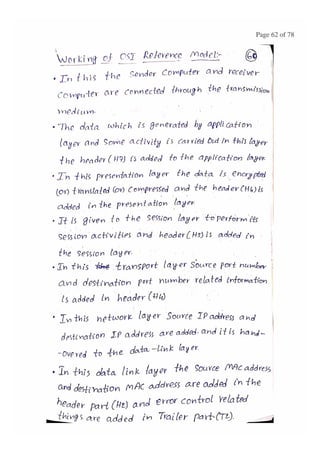 Page 62 of 78
Working of OSI Reference Model:- 60
• In this the Sender Computer and receiver
Computer are connected through the transmission
medium.
• The data which is generated by application
layer and Some activity is carried out in this layer
the header (H7) is added to the application layer
• In this presentation layer the data is encrypted
(or) translated (or) Compressed and the header (H6) is
added in the presentation layer
• It is given to the session layer to perform its
Session activities and header (H5) is added in
the session layer.
• In this transport layer Source port number
and destination port number related information
is added in header (H4)
• In this network layer Source IP address and
destination IP address are added. and it is hand-
-overed to the data-link layer
• In this data link layer the Source MAC address
and destination MAC address are added in the
header part (H2) and error control related
things are added in Trailer part (T2).